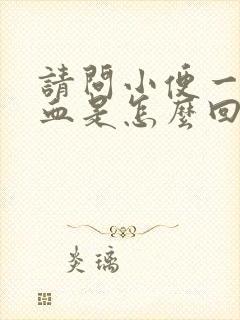 請問小便一
血是怎麼回
炎璃